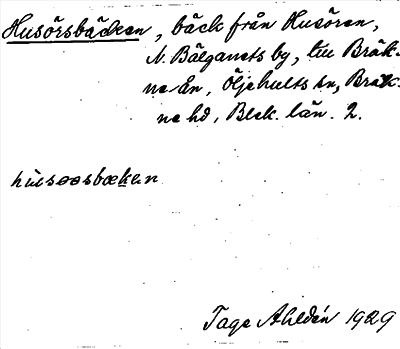 Husörsbäcken, bäck från Husören,
N. Bälganets by, till Bräk-
ne ån, Öljehults sn, Bräk-
ne hd, Blek. län. 2.
husøsbæken
Tage Ahldén 1929